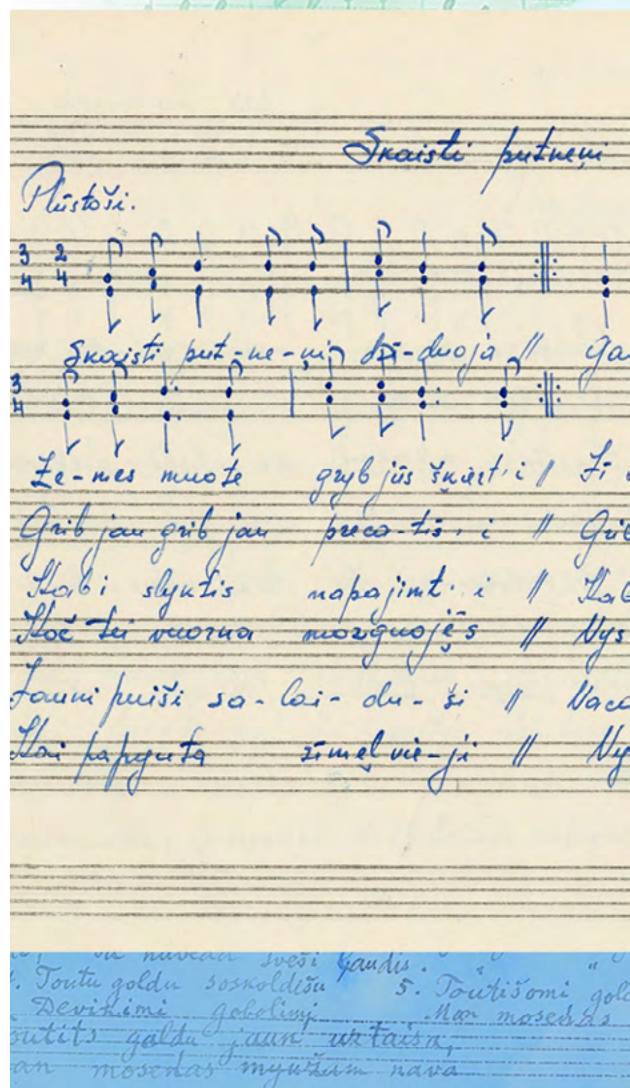 Skaisti putneņi
Plūstoši.
3 2
4 4
Skaisti put-ne-ņi dzī-duoja // Ga
3
4
Ze-mes muote gryb jūs šķiert.i //
Grib jau grib jau preca-tīs.i // Grib
Kab i slyktis napajimt.i // Kab
Koč tei vuorna mozguojēs // Vys
Jauni puiši sa-lai-du-ši // Vaca
Kai papyuta zīmeļvie-ji // Vy
naveda sveši ļaudis.
4. Toutu goldu soskoldišu 5. Toutišomi gold
Deviņimi gobolimi Man mosenas
outits goldu jaun uztaisa,
an mosenas myužam nava